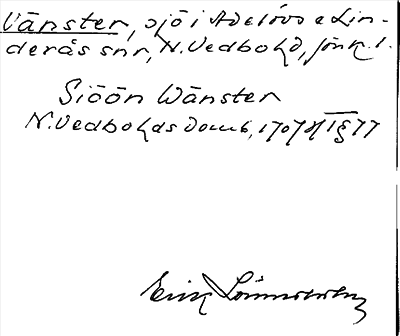 Vänster, sjö i Adelövs o Lin-
derås snr, N. Vedbo hd, Jönk. l.
Siöön Wänster
N. Vedbo hds Domb, 1707 8/
Erik